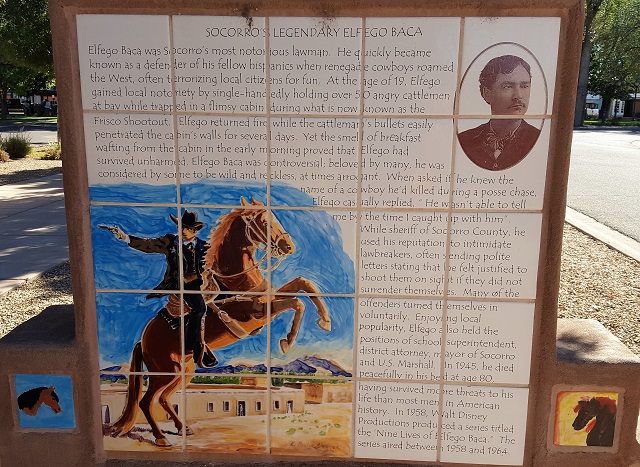 SOCORRO'S LEGENDARY ELFEGO BACA
Elfego Baca was Socorro's most notorious lawman. He quickly became
known as a defender of his fellow hispanics when renegade cowboys roamed
the West, often terrorizing local citizens for fun. At the age of 19, Elfego
gained local notoriety by single-handedly holding over 50 angry cattlemen
at bay while trapped in a flimsy cabin during what is now known as the
Frisco Shootout. Elfego returned fire while the cattleman's bullets easily
penetrated the cabin's walls for several days. Yet the smell of breakfast
wafting from the cabin in the early morning proved that Elfego had
survived unharmed. Elfego Baca was controversial: beloved by many, he was
considered by some to be wild and reckless, at times arrogant. When asked if he knew the
name of a cowboy he'd killed during a posse chase,
Elfego casually replied, "He wasn't able to tell
me by the time I caught up with him".
While sheriff of Socorro County, he
used his reputation to intimidate
lawbreakers, often sending polite
letters stating that he felt justified to
shoot them on sight if they did not
surrender themselves. Many of the
offenders turned themselves in
voluntarily. Enjoying local
popularity, Elfego also held the
positions of school superintendent,
district attorney, mayor of Socorro
and U.S. Marshall. In 1945, he died
peacefully in his bed at age 80,
having survived more threats to his
life than most men in American
history. In 1958, Walt Disney
Productions produced a series titled
the "Nine Lives of Elfego Baca." The
series aired between 1958 and 1964.